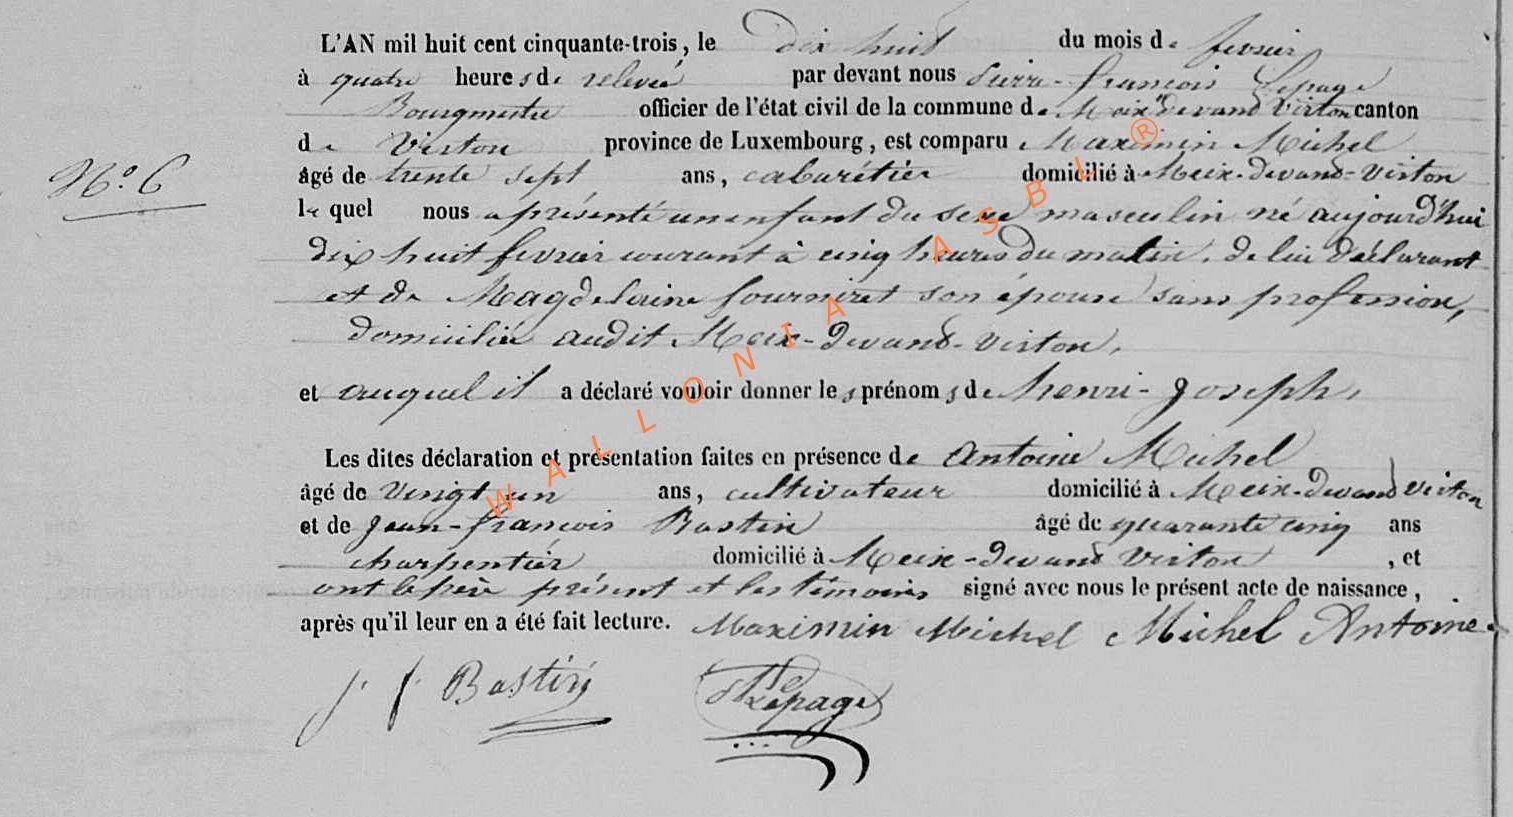 L'AN mil huit cent cinquante-trois, le dix huit du mois de fevrier
à quatre heures de relevée par devant nous Pierre-françois Lepage
Bourgmestre officier de l'état civil de la commune de Meix devand Virton canton
de Virton province de Luxembourg, est comparu Maximin Michel
N.o 6
âgé de trente sept ans, cabarétier domicilié à Meix-devand-Virton
le quel nous a présenté un enfant du sexe masculin né aujourd'hui
dix huit fevrier courant à cinq heures du matin, de lui déclarant
et de Magdelaine fourniret son épouse sans profession,
domiciliée audit Meix-devand-Virton,
et auquel il a déclaré vouloir donner les prénoms de henri-Joseph,
Les dites déclaration et présentation faites en présence de Antoine Michel
âgé de vingt un ans, cultivateur domicilié à Meix-devand Virton
et de Jean-françois Bastin âgé de quarante cinq ans
charpentier domicilié à Meix-devand Virton, et
ont le père présent et les témoins signé avec nous le présent acte de naissance,
après qu'il leur en a été fait lecture. Maximin Michel Michel Antoine
J. f. Bastin Lepage
WALLONIA ASBL ®